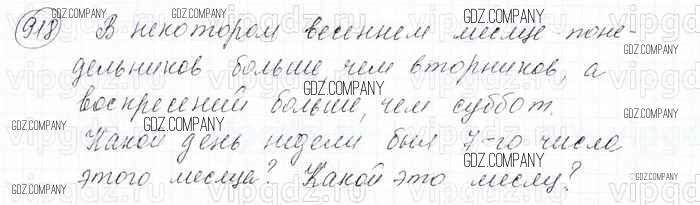 918 В некотором весеннем месяце поне-
дельников больше, чем вторников, а
воскресений больше, чем суббот.
Какой день недели был 7-го числа
этого месяца? Какой это месяц?
GDZ.COMPANY
GDZ.COMPANY
GDZ.COMPANY
GDZ.COMPANY
GDZ.COMPANY
GDZ.COMPANY
GDZ.COMPANY
GDZ.COMPANY
GDZ.COMPANY
GDZ.COMPANY
GDZ.COMPANY
GDZ.COMPANY